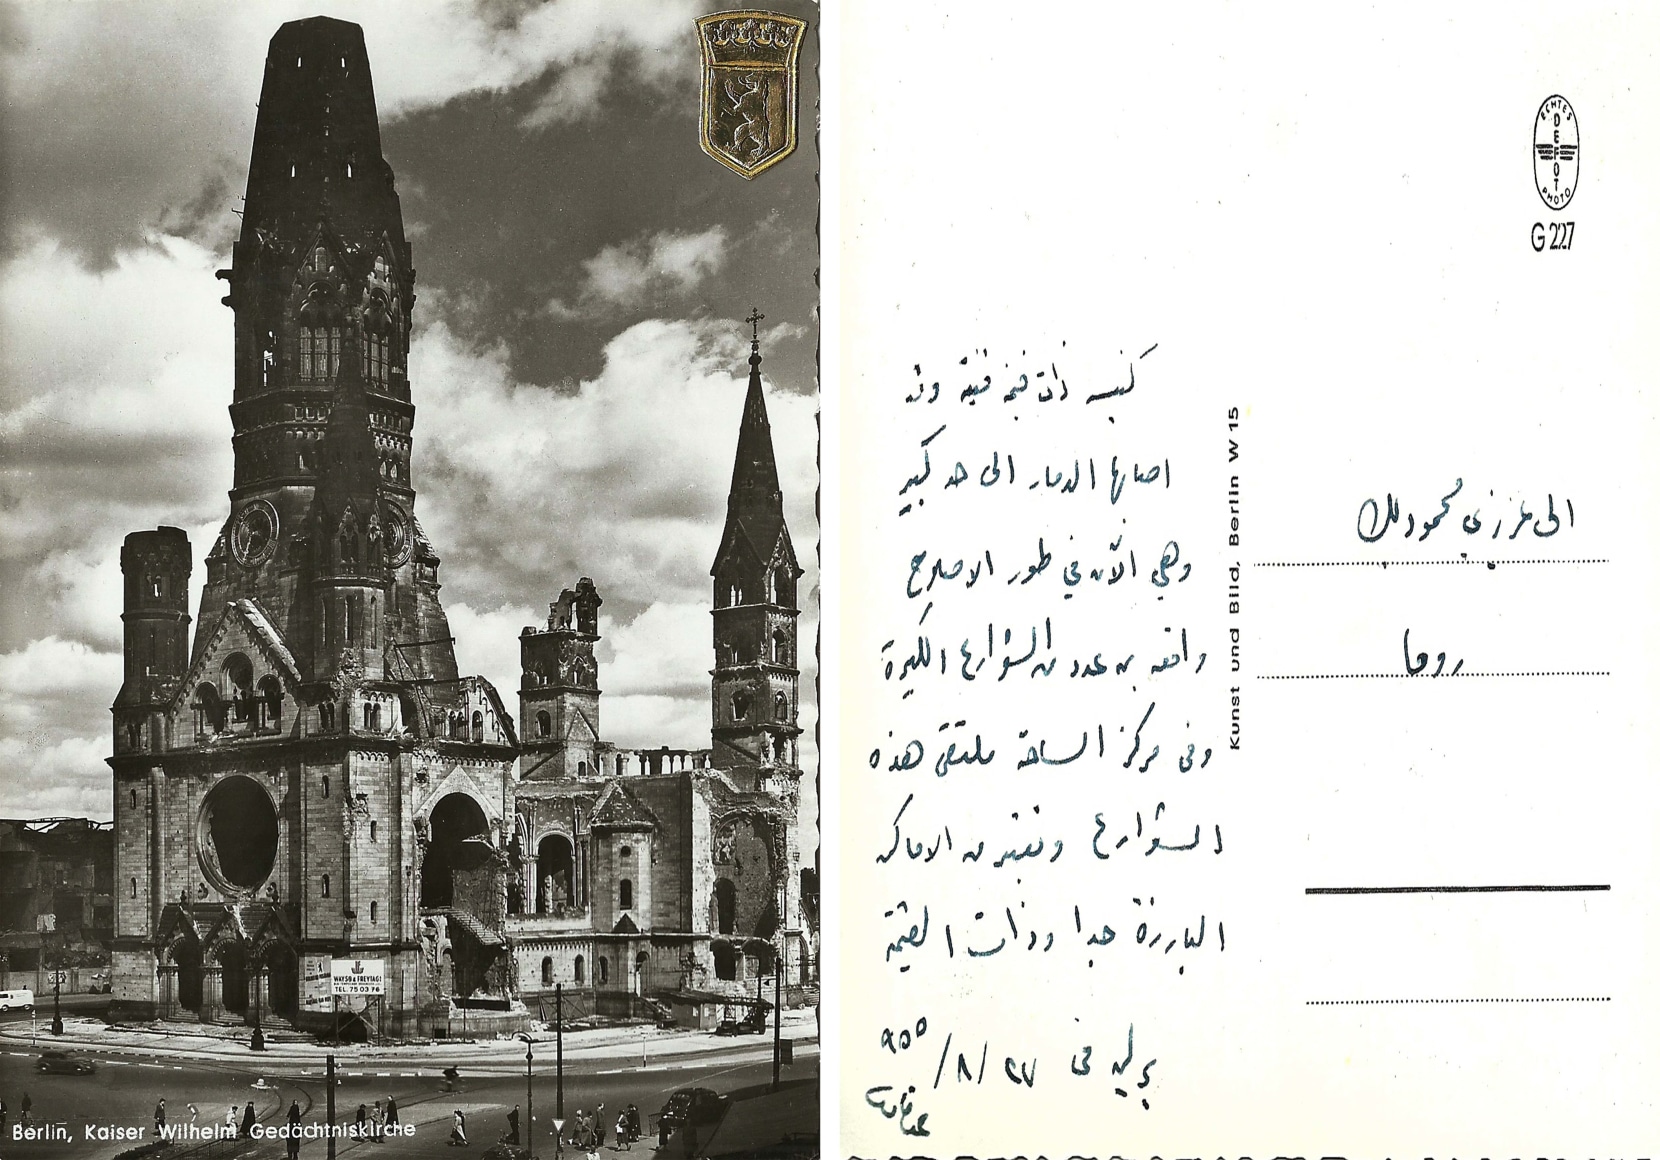 Berlin, Kaiser Wilhelm Gedächtniskirche
WAYSS & FREYTAG
TEL. 75 03 76
ECHTES
DEFOT
PHOTO
G 227
Kunst und Bild, Berlin W 15
كنيسه ذات قيمه فنية وقد
اصابها الدمار الى حد كبير
وهي الآن في طور الاصلاح
واقعه بين عدد من الشوارع الكبيرة
وفي مركز الساحة ملتقى هذه
الشوارع وتعتبر من الاماكن
البارزة جدا وذات القيمة
برلين في ٢٧/٨/٩٥٥
الى عزيزي محمود بك
روما